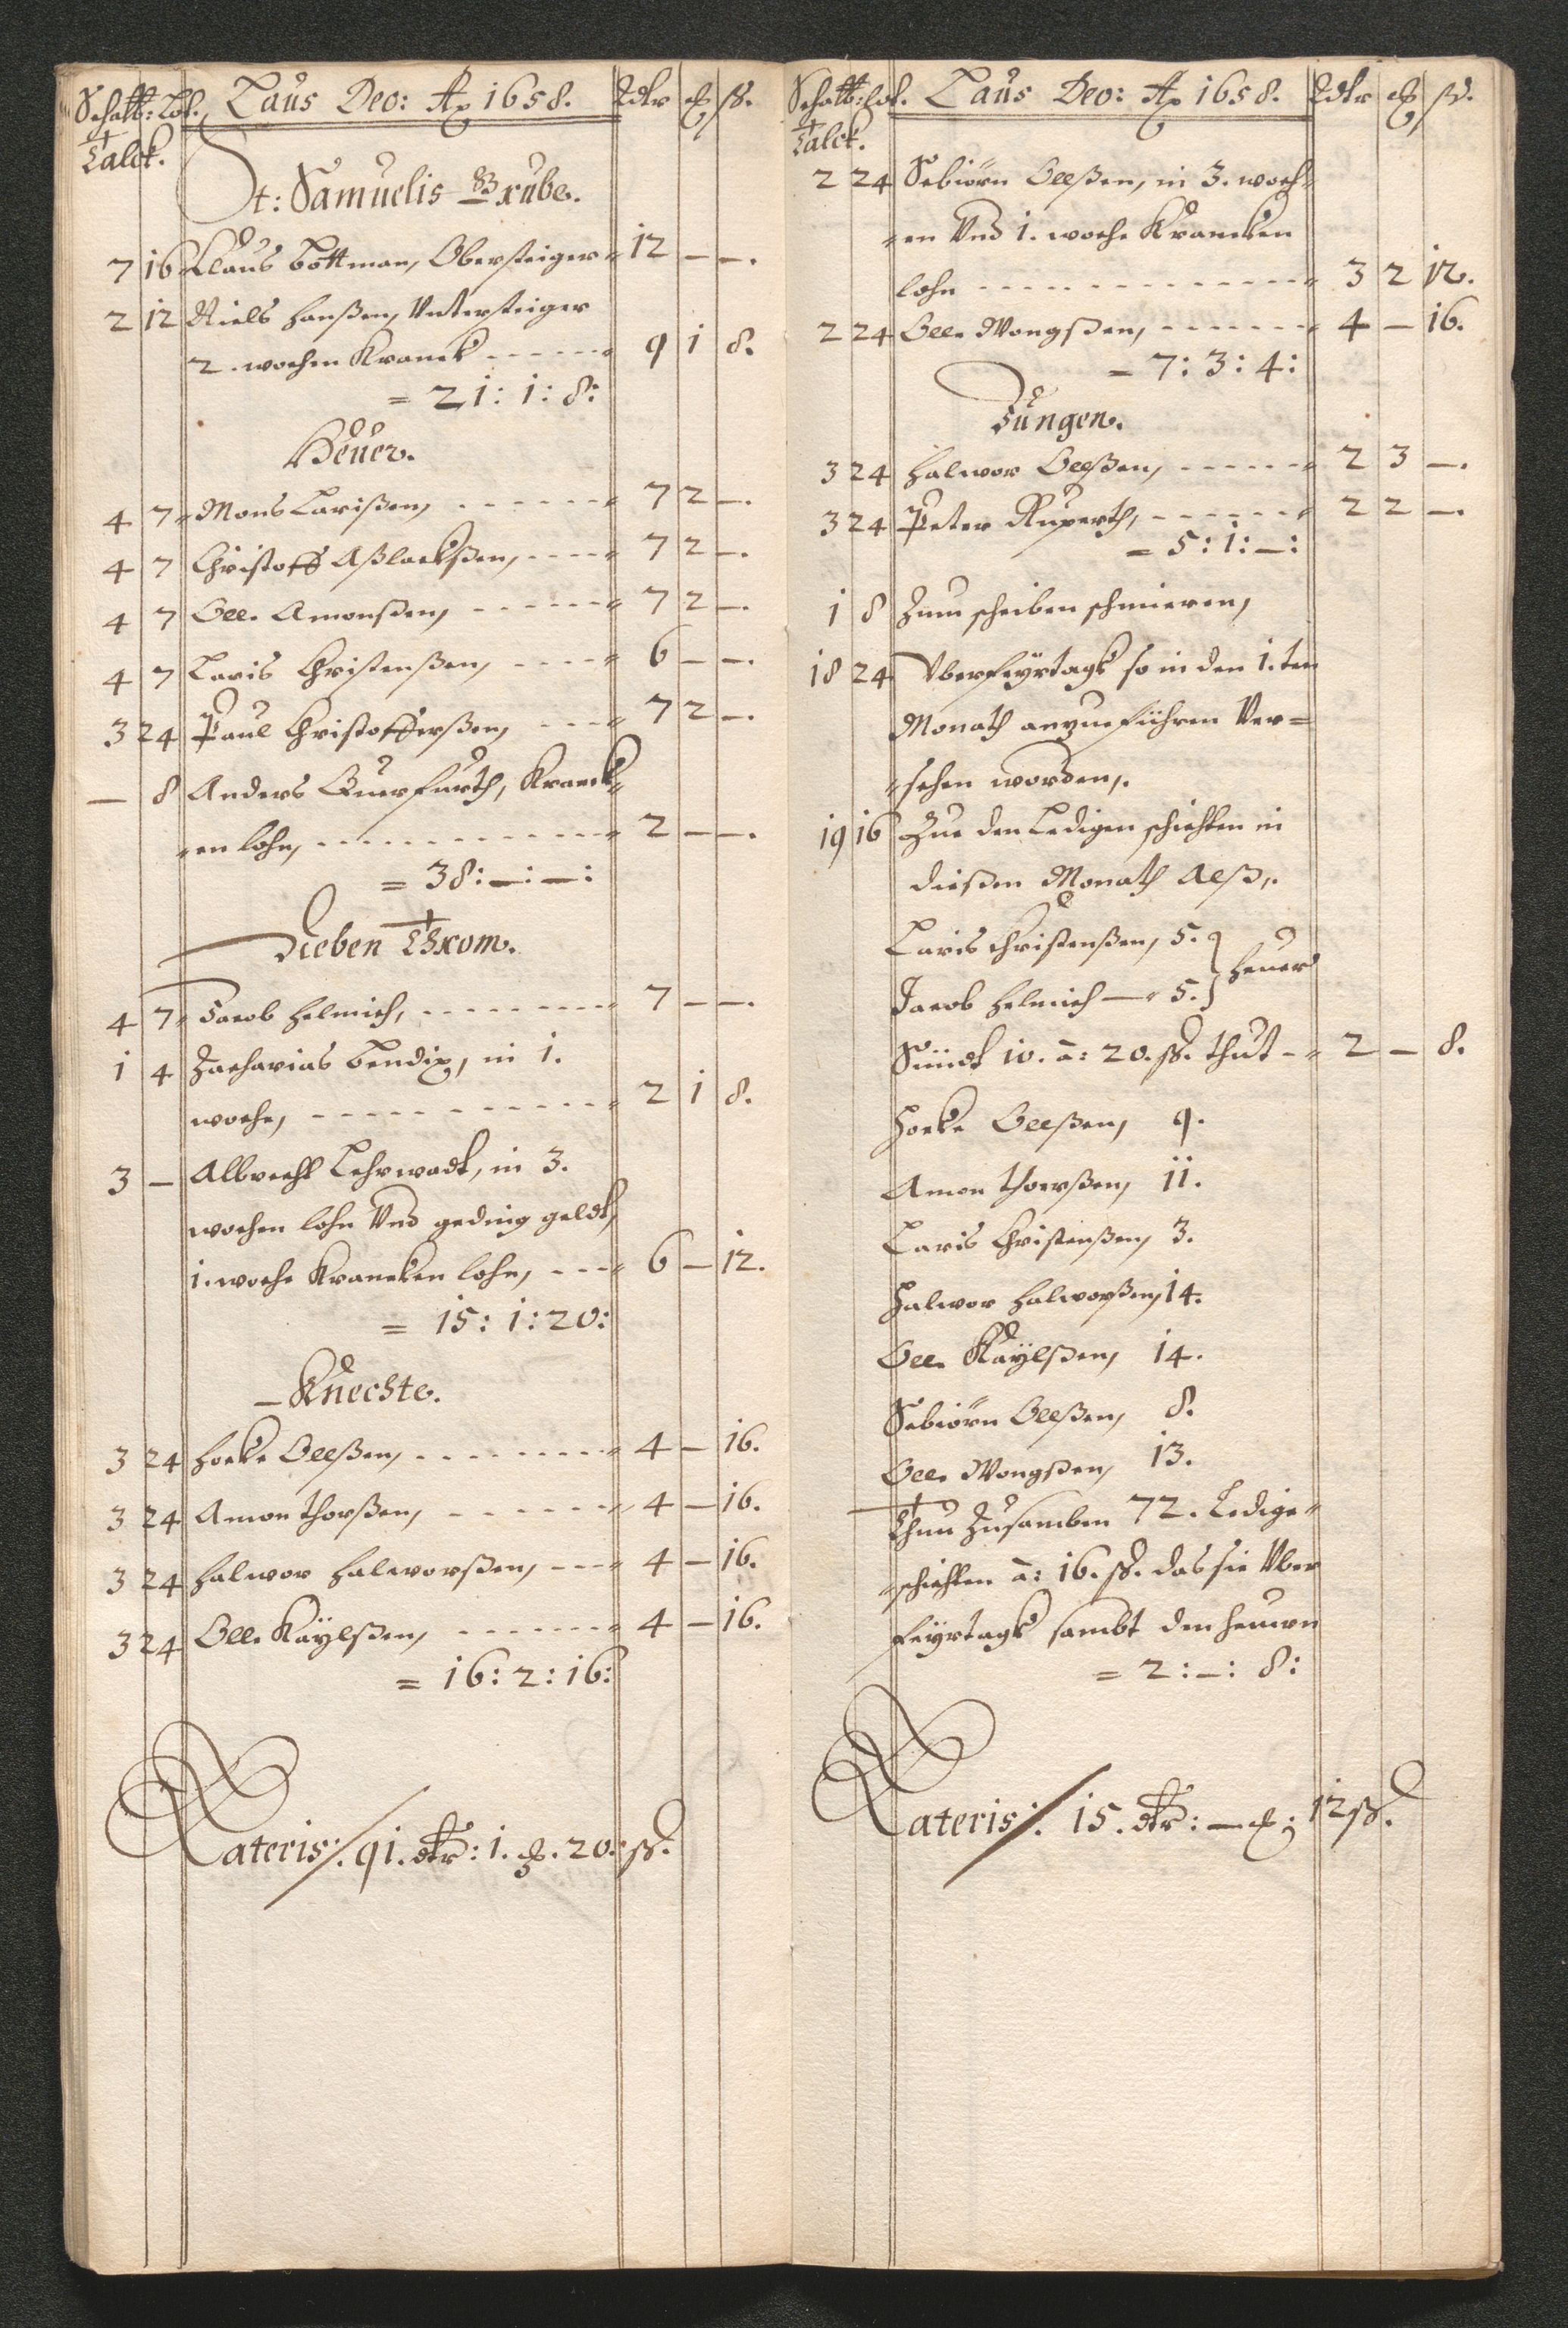 Schatt: Lot. Laus Deo: Ao 1658. Rdlr ort ß.
Talck.
St: Samuelis Grube.
7 16 Claus Bottman, Obersteiger 12 — —.
2 12 Niels Hanßen, Untersteiger
2. wochen Kranck - - - - - - 9 1 8.
= 21: 1: 8:
Heuer.
4 7 Mons Larißen, - - - - - - 7 2 —.
4 7 Christoff Aßlackßen, - - - - 7 2 —.
4 7 Olle Amonßen, - - - - - - 7 2 —.
4 7 Laris Christenßen, - - - - 6 — —.
3 24 Paul Christofferßen, - - - 7 2 —.
— 8 Anders Querfurth, Kranck=
=en lohn, - - - - - - - - - 2 — —.
= 38: —: —:
Sieben Throm.
4 7 Jacob Helmich, - - - - - - - 7 — —.
1 4 Zacharias Bendix, in 1.
woche, - - - - - - - - - - 2 1 8.
3 — Albrecht Lehrwadt, in 3.
wochen lohn Und geding geldt,
1. woche Krancken lohn, - - - 6 — 12.
= 15: 1: 20:
Knechte.
3 24 Hocke Olleßen, - - - - - - - 4 — 16.
3 24 Amon Thorßen, - - - - - - 4 — 16.
3 24 Halwor Halworßen, - - - 4 — 16.
3 24 Olle Käylßen, - - - - - - - 4 — 16.
= 16: 2: 16:
Lateris:/. 91. dlr: 1. ort. 20. ß.
Schatt: Lot. Laus Deo: Ao 1658. Rdlr ort ß.
Talck.
2 24 Sebiörn Olleßen, in 3. woch=
=en Und 1. woche Krancken
lohn - - - - - - - - - - - - 3 2 12.
2 24 Olle Mongßen, - - - - - - - 4 — 16.
= 7: 3: 4:
Jungen.
3 24 Halwor Olleßen, - - - - - - 2 3 —.
3 24 Peter Ruperth, - - - - - - 2 2 —.
= 5: 1: —:
1 8 Zum scheiben schmieren,
18 24 Uberfeyrtags so in den 1.ten
Monath anzueführen Ver=
=sehen worden,.
19 16 Zue den Ledigen schichten in
dießen Monath Alß,.
Laris Christenßen, 5. } Heuer
Jacob Helmich — 5.
Sündt 10. à: 20. ß. thut - 2 — 8.
Hocke Olleßen, 9.
Amon Thorßen, 11.
Laris Christenßen, 3.
Halwor Halworßen, 14.
Olle Käylßen, 14.
Sebiörn Olleßen, 8.
Olle Mongßen, 13.
Thun Zusamben 72. Ledige=
=schichten à: 16. ß. das sie Uber
feyrtags sambt den Heuern
= 2: —: 8:
Lateris:/. 15. dlr: — ort: 12 ß.